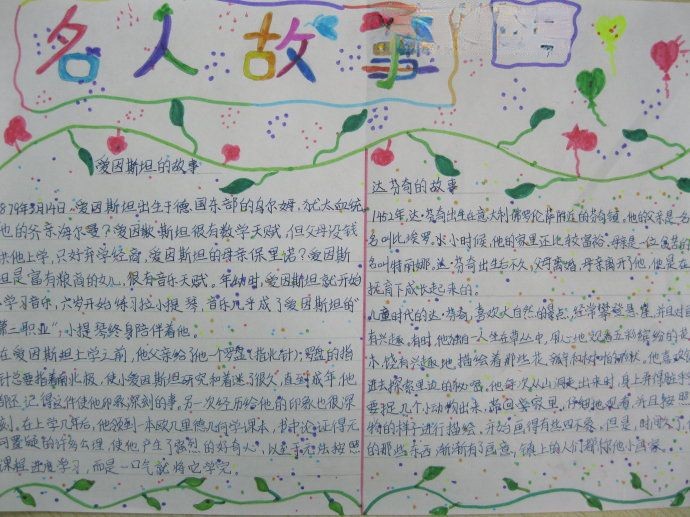 名人故事
爱因斯坦的故事
879年3月14日,爱因斯坦出生于德国东部的乌尔姆,犹太血统
他的爷亲海尔曼?爱因斯坦很有数学天赋,但父母没钱
供他上学,只好弃学经商,爱因斯坦的母亲保里诺?爱因斯
坦是富有粮商的女儿,很有音乐天赋。年幼时,爱因斯坦就开始
学习音乐,六岁开始练习拉小提琴,音乐几乎成了爱因斯坦的"
第二职业",小提琴终身陪伴着他。
在爱因斯坦上学之前,他父亲给了他一个罗盘(指北针)罗盘的指
针总要指着南北极,使小爱因斯坦研究和着迷了很久,直到成年,他
都还记得这件使他印象深刻的事。另一次经历给他的印象也很深
刻,在上学几年后,他领到一本欧几里德几何学课本,书中论证得无
可置疑的许多公理,使他产生了强烈的好奇心,以至于无法按照
课程进度学习,而是一口气就将它学完
达芬奇的故事
1452年,达·芬奇出生在意大利佛罗伦萨附近的芬奇镇。他的父亲是一名
名叫比埃罗。小时候,他的家里还比较富裕。母亲是一位
名叫特丽娜。达·芬奇出生后不久,父母离婚,母亲离开了他,他是在
抚育下成长起来的:
儿童时代的达·芬奇,喜欢大自然的景点,经常攀登
有兴趣。有时,他独自一人坐在草丛中,用心地观看五彩缤纷的
小饶有兴趣地描绘着那些花
进去探索里边的秘密,他每次从山洞走出来时,身上弄得脏
要捉几个小动物出来,带回爹家里,仔细地观看,并且按照
物的样子进行描绘,开始画得有些四不象。但是,时间久了,
的那些东西渐渐有了画意,镇上的人们都称他小画家。